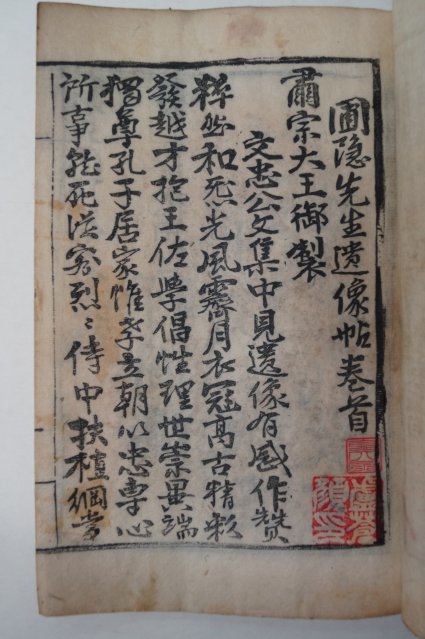 圃隐先生遺像帖卷首
肅宗大王御製
文忠公文集中見遺像有感作贊
粹然和氣光風霽月衣冠高古精彩
發越才抱王佐學倡性理世崇異端
獨尊孔子居家惟孝立朝以忠專心
所事能死滋害烈〻侍中扶植綱常